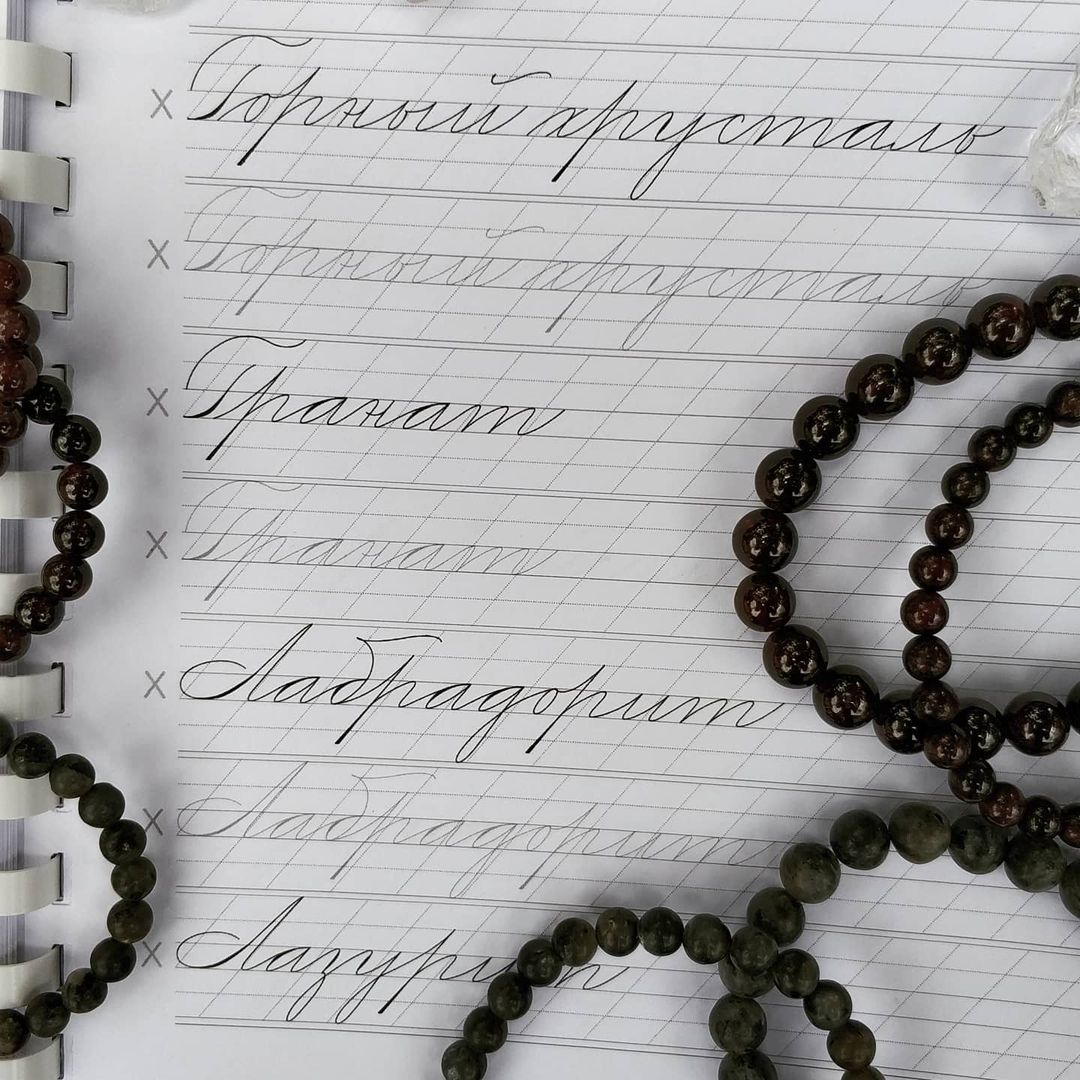 х Горный хрусталь
х Горный хрусталь
х Гранат
х Гранат
х Лабрадорит
х Лабрадорит
х Лазурит